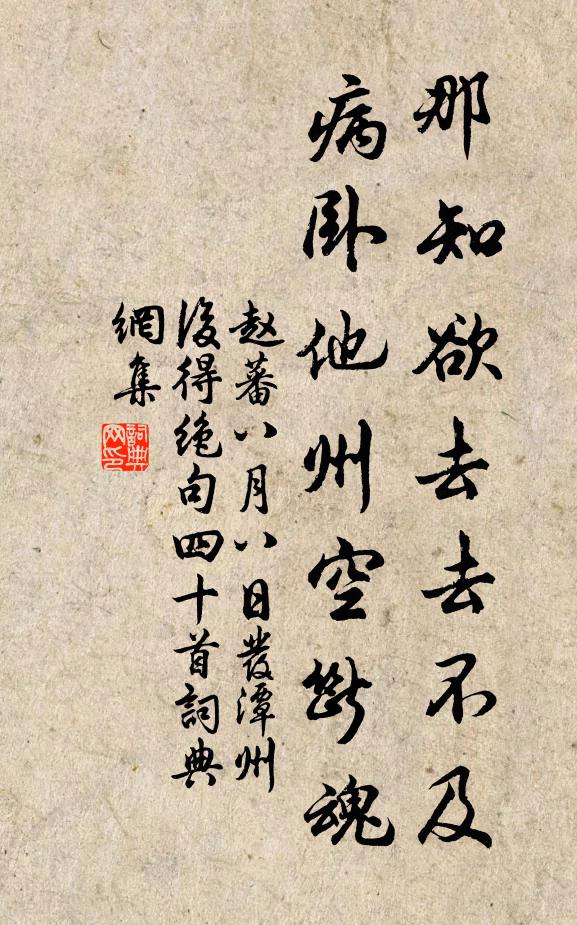 那知欲去去不及
病卧他州空断魂
赵蕃八月八日發潭州
後得绝句四十首詞典
網集
詞典網印